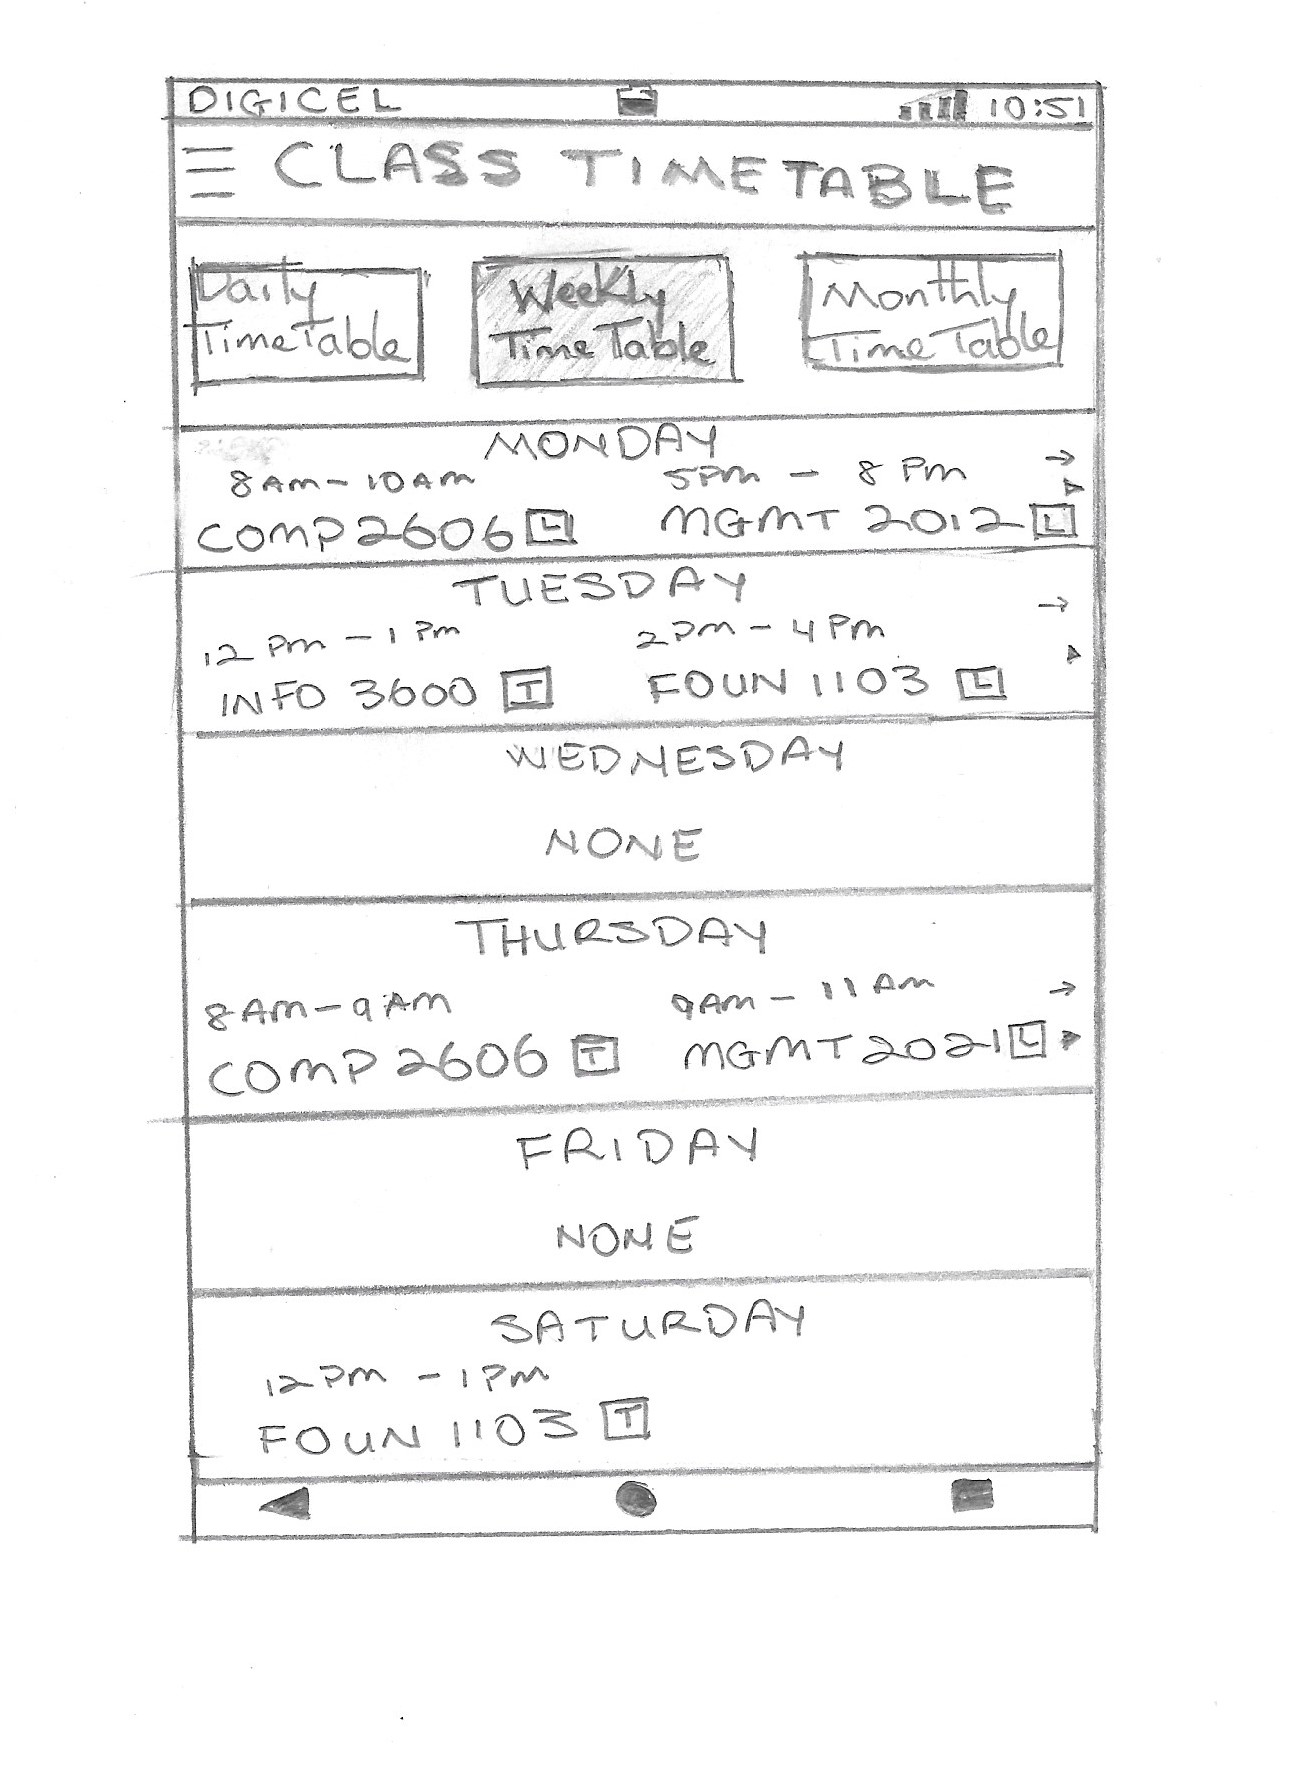 DIGICEL 10:51
CLASS TIMETABLE
Daily
TimeTable
Weekly
Time Table
Monthly
Time Table
MONDAY
8AM - 10AM 5PM - 8PM
COMP 2606 L MGMT 2012 L
TUESDAY
12PM - 1PM 2PM - 4PM
INFO 3600 T FOUN 1103 L
WEDNESDAY
NONE
THURSDAY
8AM - 9AM 9AM - 11AM
COMP 2606 T MGMT 2021 L
FRIDAY
NONE
SATURDAY
12PM - 1PM
FOUN 1103 T